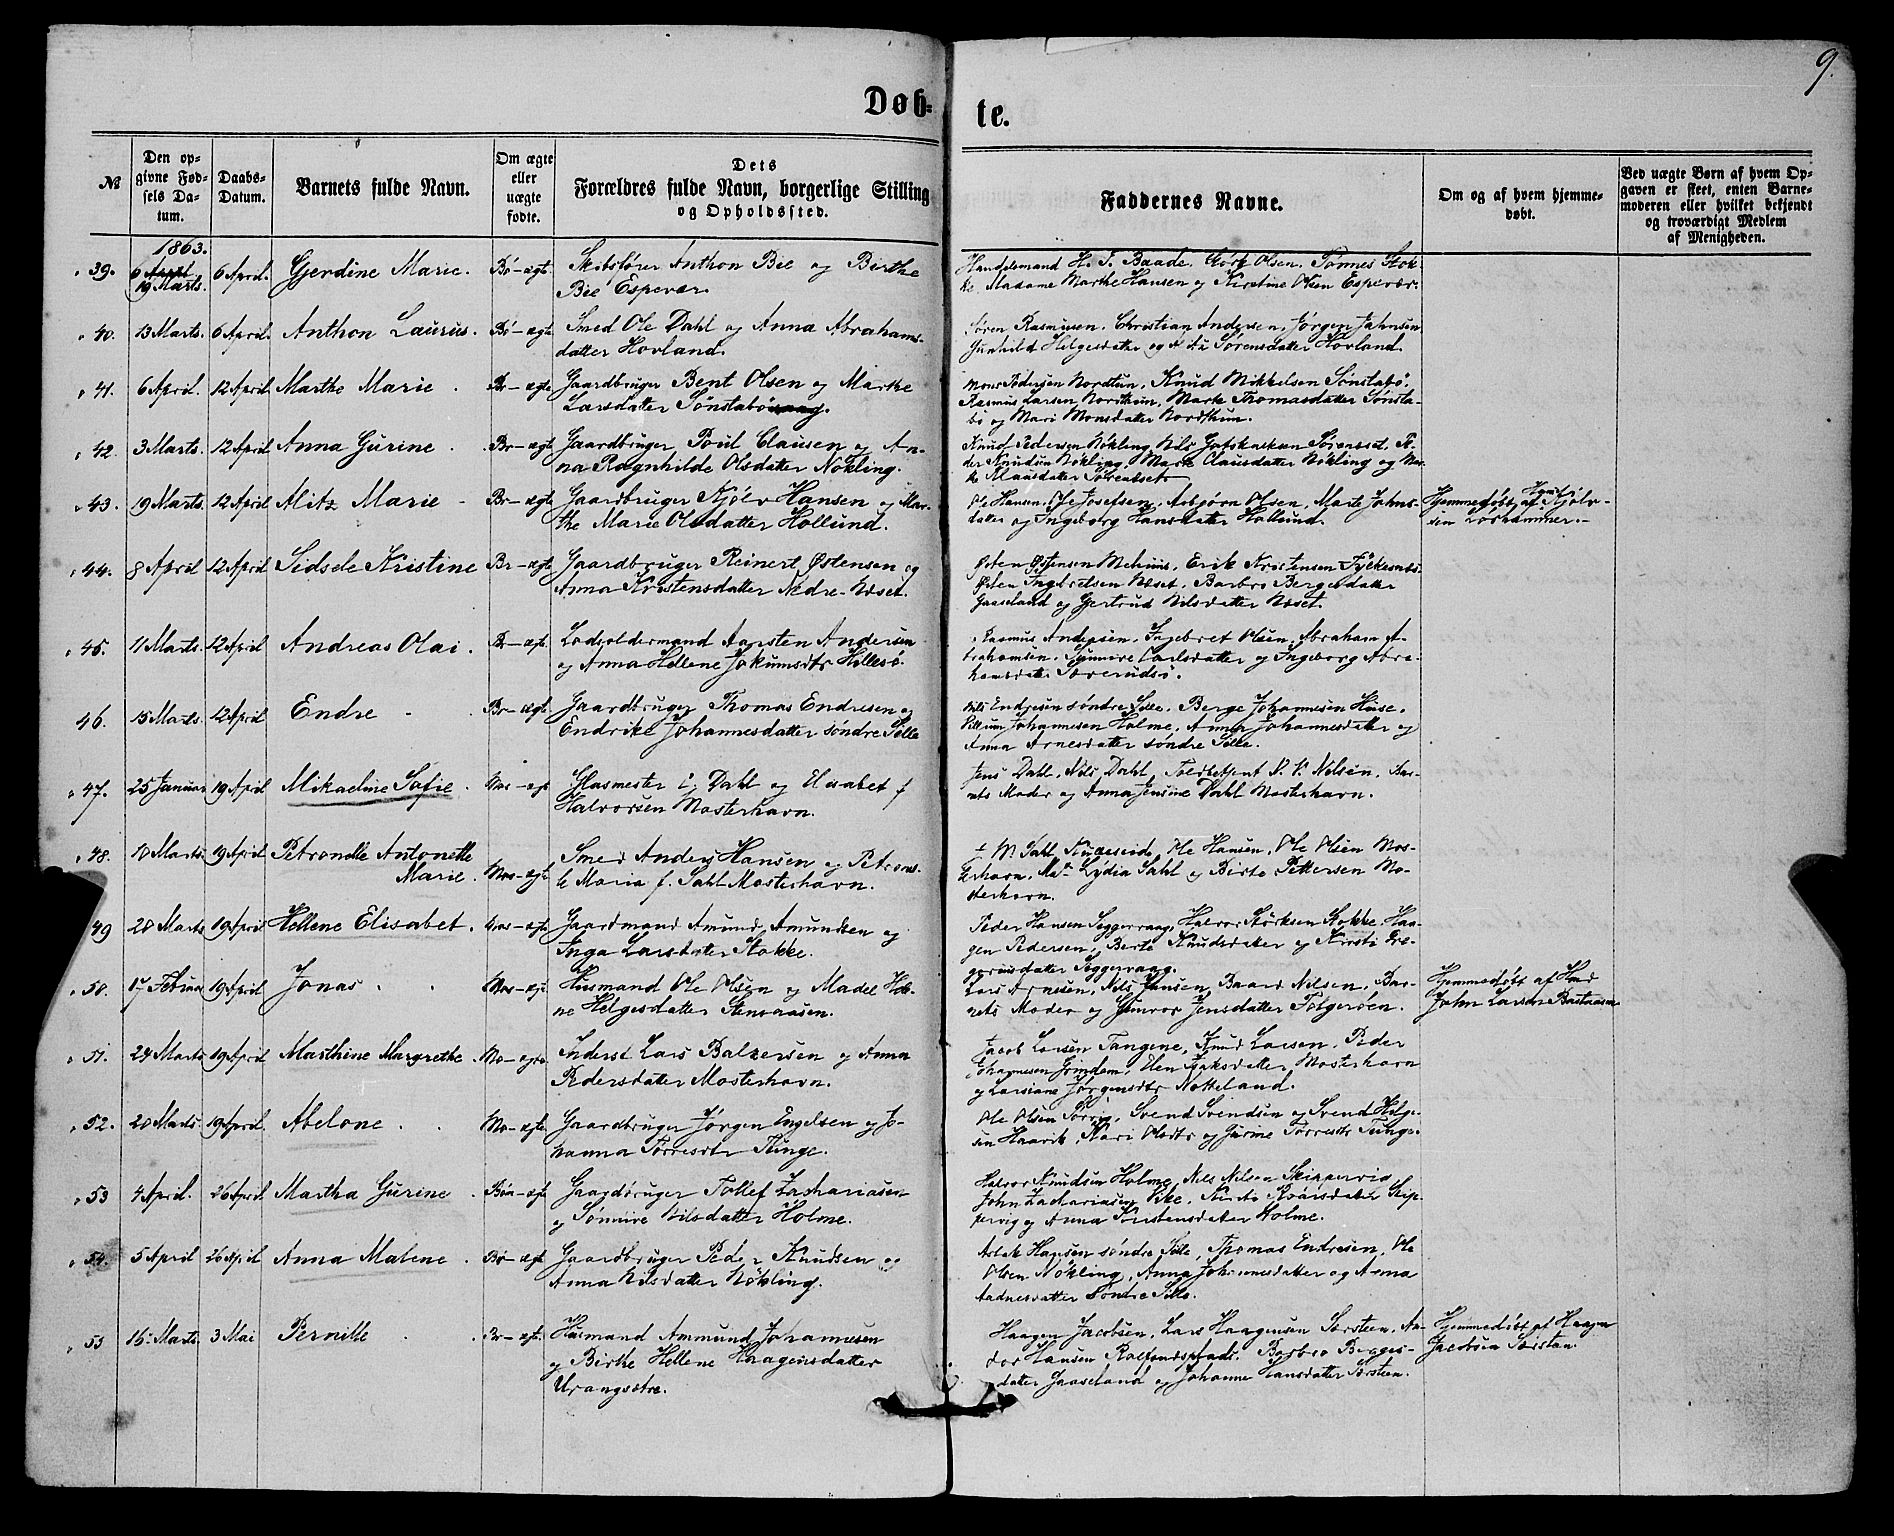 9.
Døb-
te.
№
Den op-
givne Fød-
sels Da-
tum.
Daabs-
Datum.
Barnets fulde Navn.
Om ægte
eller
uægte
fødte.
Dets
Forældres fulde Navn, borgerlige Stilling
og Opholdssted.
Faddernes Navne.
Om og af hvem hjemme-
døbt.
Ved uægte Børn af hvem Op-
gaven er skeet, enten Barne-
moderen eller hvilket bekjendt
og troværdigt Medlem
af Menigheden.
1863.
39. 6 April 19 Marts. 6 April. Gjerdine Marie. Bö- ægte Skibsfører Anthon Bee og Berthe
Bee Espevær.
Handelsmand H. J. Baade, Olsen, Tønnes Stok-
ke, Madame Marthe Hansen og Kirstine Olsen Espevær.
40. 13 Marts. 6 April. Anthon Laurus. Bö- ægte Smed Ole Dahl og Anna Abrahams-
datter Hovland.
Søren Rasmusen, Christian Andersen, Jørgen Jahnsen
Gunhild Helgesdatter og Sørensdatter Hovland.
41. 6 April. 12 April Marthe Marie. Br- ægte Gaardbruger Bent Olsen og Marthe
Larsdatter Sönstabö.
Mons Pedersen Nordtun, Knud Mikkelsen Sönstabö,
Rasmus Larsen Nordthun, Marte Thomasdatter Sönsta-
bö og Mari Monsdatter Nordthun.
42. 3 Marts. 12 April Anna Gurine. Br- ægte Gaardbruger Poul Clausen og An-
na Ragnhilde Olsdatter Nökling.
Knud Pedersen Nökling, Nils Pe-
der Knudsen Nökling, Marte Clausdatter Nökling og Mar-
43. 19 Marts. 12 April Alitz Marie - Br- ægte Gaardbruger Kjölv Hansen og Mar-
the Marie Olsdatter Hollund.
Ole Hansen, Ole Josefsen, Asbjörn Olsen, Marte Johns-
datter og Ingeborg Hansdatter Hollund.
Hjemmedöbt af Kjölv-
sen
44. 8 April 12 April Sidsele Kristine Br- ægte Gaardbruger Reinert Östensen og
Anna Kristensdatter Nedre-Næset.
Östen Östensen Mehuus, Erik Kristensen Fjökesnæs,
Östen Ingbretsen Næset, Barbro Bergesdatter
Gaaseland og Gertrud Nilsdatter Næset.
45. 11 Marts. 12 April Andreas Olai. Br- ægte Lodsoldermand Karsten Andersen
og Anna Hellene Jokumsdtr Hillesö.
Rasmus Andersen, Ingebret Olsen, Abraham A-
brahamsen, Synneve Carlsdatter og Ingeborg Abra-
46. 15 Marts. 12 April Endre - Br- ægte Gaardbruger Thomas Endresen og
Endrike Johannesdatter söndre Sille
Nils Endresen söndre Sille, Berge Johannesen Huse,
Villum Johannesen Holme, Anna Johannesdatter og
Anna Arnesdatter söndre Sille.
47. 25 Januar 19 April Mikaeline Sofie. Mos- ægte Glasmester Dahl og Elisabet f
Halvorsen Mosterhavn.
Jens Dahl, Nils Dahl, Toldbetjent N. Nilsen, Bar-
nets Moder og Anna Jensine Dahl Mosterhavn.
48. 10 Marts. 19 April Petronelle Antonette
Marie. Mos- ægte Smed Anders Hansen og Petronel-
le Maria f. Dahl Mosterhavn.
Ole Hansen, Ole Olsen Mos-
terhavn, Lydia Dahl og Birte Pettersen Mo-
sterhavn.
49 28 Marts 19 April Hellene Elisabet. Mos- ægte Gaardmand Amund Amundsen og
Inga Larsdatter Stokke.
Peder Hansen Siggervaag, Halvor Störksen Stokke, Haa-
gen Pedersen, Berte Knudsdatter og Kirsti Gre-
goriusdatter Siggervaag.
50. 17 Februar 19 April Jonas. Mos- ægte Husmand Ole Olsen og Madel Hele-
ne Helgesdatter
Lars Arnesen, Nils Jensen, Baard Nilsen, Bar-
nets Moder og Gunvor Jensdatter Folgeröen.
Hjemmedöbt af
John Larsen
51. 24 Marts 19 April Marthine Margrethe. Mo- ægte Inderst Lars Balzersen og Anna
Pedersdatter Mosterhavn.
Jacob Larsen Tangene, Knud Larsen, Peder
Johannesen Grindem, Elen Isaksdatter Mosterhavn
og Larsiane Jörgensdtr Notteland.
52. 20 Marts 19 April Abelone. Mo- ægte Gaardbruger Jörgen Engelsen og Jo-
hanna Torresdtr Tunge.
Ole Olsen Svend Svendsen og Svend Helge-
sen Haavik, Kari Olsdtr og Gurine Torresdtr Tunge.
53 4 April. 26 April. Martha Gurine. Böm- ægte Gaardbruger Tollef Zachariasen
og Sönnive Nilsdatter Holme.
Halvor Knudsen Holme, Nils Nilsen Skippervig
John Zachariasen Vike, Kirsti Roarsdatter Skip-
pervig og Anna Torstensdatter Holme.
54. 5 April 26 April Anna Malene. Br- ægte Gaardbruger Peder Knudsen og
Anna Nilsdatter Nökling.
Aslak Hansen söndre Sille, Thomas Endresen, Ole
Olsen Nökling, Anna Johannesdatter og Anna
Aadnesdatter söndre Sille.
55 15. Marts 3 Mai Pernille Br- ægte Husmand Ammund Johannesen
og Birthe Hellene Haagensdatter
Urangsætre.
Haagen Jacobsen, Lars Haagensen Sørsteen, An-
dor Hansen Barbro Berges-
datter Gaaseland og Johanne Hansdatter Sørsteen.
Hjemmedöbt af Haagen
Jacobsen